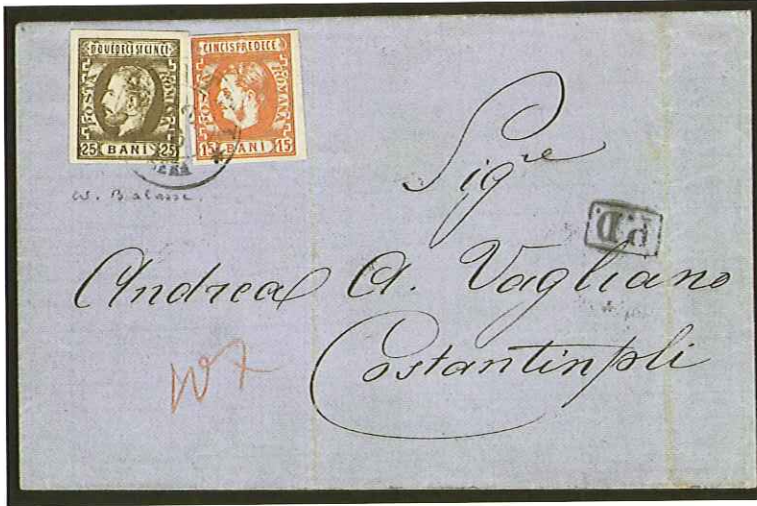 DOUEDECI SI CINCI
POSTA ROMANA
25 BANI 25
CINCISPREDECE
POSTA ROMANA
15 BANI 15
w. Balasse.
Sigre
P.D.
Andrea A. Vagliano
Costantinpli